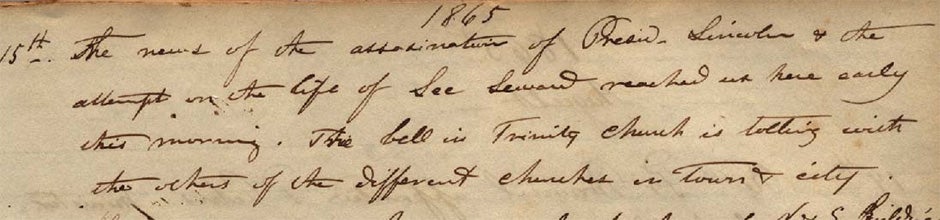 1865
15th. The news of the assasination of Presid- Lincoln & the
attempt on the life of Sec Seward reached us here early
this morning. The bell in Trinity church is tolling with
the others of the different churches in Town & city.